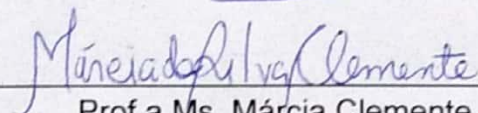 Márcia da Silva Clemente
Prof.a Ms. Márcia Clemente